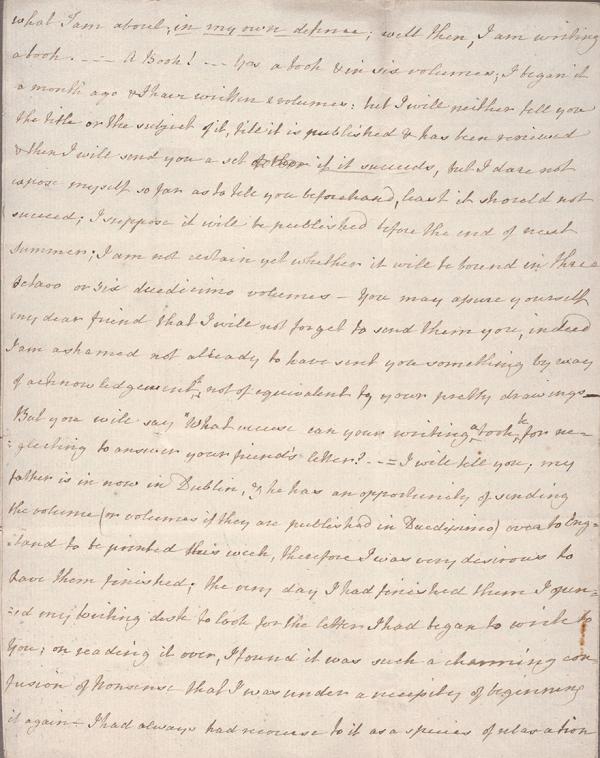 what I am about, in my own defence; well then, I am writing
a book. - - - A Book! - - - Yes a book & in six volumes; I began it
a month ago & I have written 2 volumes: but I will neither tell you
the title or the subject of it, till it is published & has been reviewed
& then I will send you a set if it succeeds, but I dare not
expose myself so far as to tell you beforehand, least it should not
succeed; I suppose it will be published before the end of next
Summer; I am not certain yet whether it will be bound in three
Octavo or six duedicimo volumes — You may assure yourself
my dear friend that I will not forget to send them you, indeed
I am ashamed not already to have sent you something by way
of acknowledgement, not of equivalent to your pretty drawings —
But you will say "What excuse can your writing a book be for ne-
=glecting to answer your friend's letter? - - = I will tell you; my
father is in now in Dublin, & he has an opportunity of sending
the volume (or volumes if they are published in Duedisimo) over to Eng-
=land to be printed this week, therefore I was very desirous to
have them finished; the very day I had finished them I open-
=ed my writing desk to look for the letter I had began to write to
You; on reading it over, I found it was such a charming con-
fusion of Nonsense that I was under a necessity of beginning
it again — I had always had recourse to it as a species of relaxation